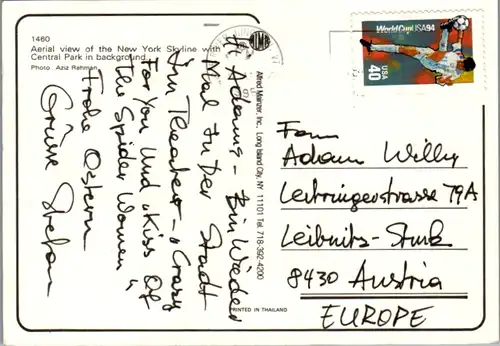 1460
Aerial view of the New York Skyline with
Central Park in background.
Photo: Aziz Rahman
Hi Adams - Bin Wieder
Mal In Der Stadt
Im Theater - "Crazy
For You Und "Kiss Of
The Spider Women"
Frohe Ostern
Grüsse Stefan
Alfred Mainzer, Inc. Long Island City, NY 11101 Tel. 718-392-4200
PRINTED IN THAILAND
WorldCupUSA94
40
USA
Fam
Adam Willy
Leitringerstrasse 79A
Leibnitz-
8430 Austria
EUROPE